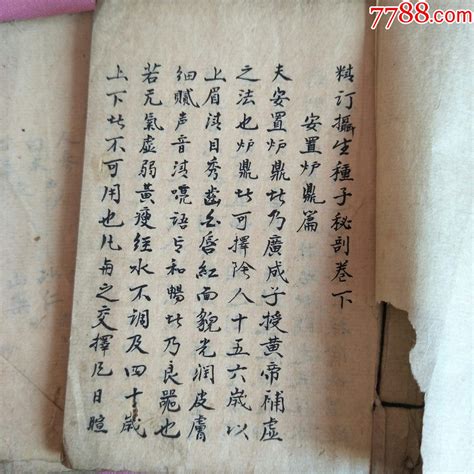 7788.com
精订攝生種子秘剖卷下
安置炉鼎篇
夫安置炉鼎者乃廣成子授黄帝補虚
之法也炉鼎者可擇陰人十五六歲以
上眉清目秀齒白唇紅面貌光润皮膚
细腻声音清喨語言和暢者乃良器也
若元氣虚弱黄瘦经水不調及四十歲
上下者不可用也凡与之交擇日暄